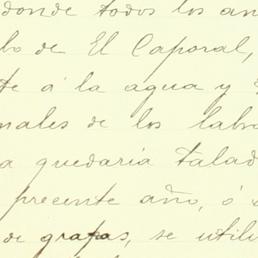 donde todos los an
bo de El Caporal,
te á la agua y
nales de los labo
a quedaria talad
precente año, ó
de grapas, se utili